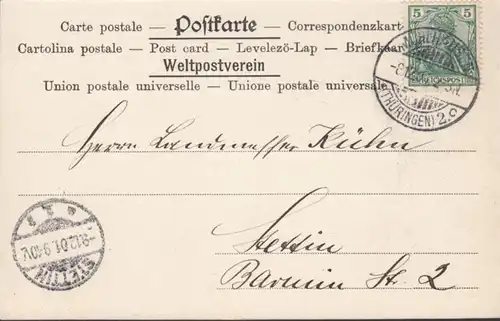 Carte postale — Postkarte — Correspondenzkart
Cartolina postale — Post card — Levelező-Lap — Briefkaar
Weltpostverein
Union postale universelle — Unione postale universale
5 5
REICHSPOST
(THÜRINGEN) 2.c
Herrn Landmesser Kühn
Stettin
Barnim Str. 2
STETTIN
9.12.01.9-10V.